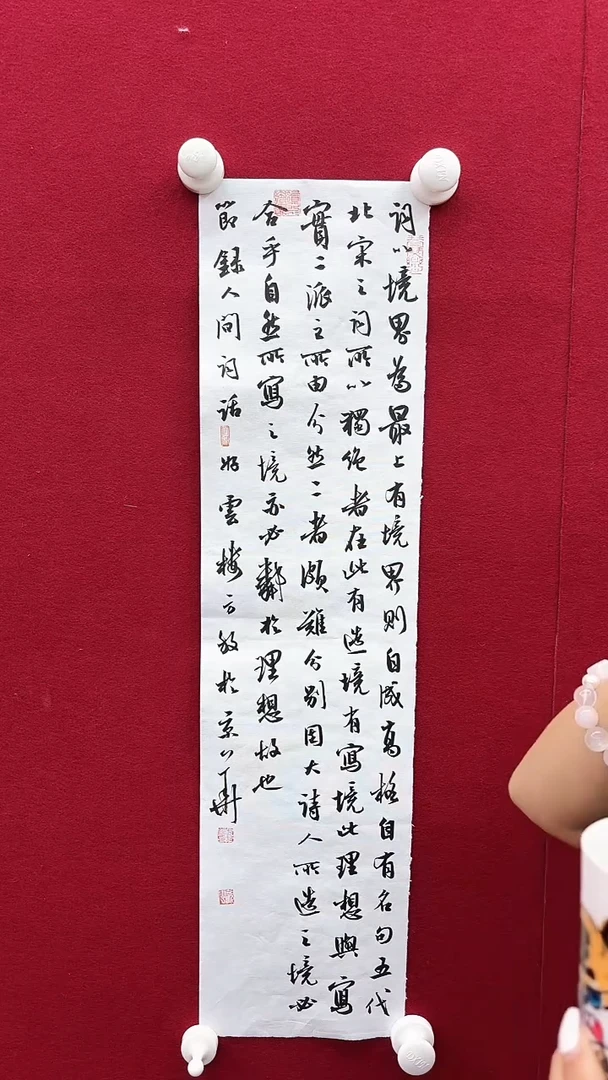 詞以境界為最上有境界則自成高格自有名句五代
北宋之詞所以獨絕者在此有造境有寫境此理想與寫
實二派之所由分然二者頗難分別因大詩人所造之境必
合乎自然所寫之境亦必鄰於理想故也
節錄人間詞話 好雲樓方於京華